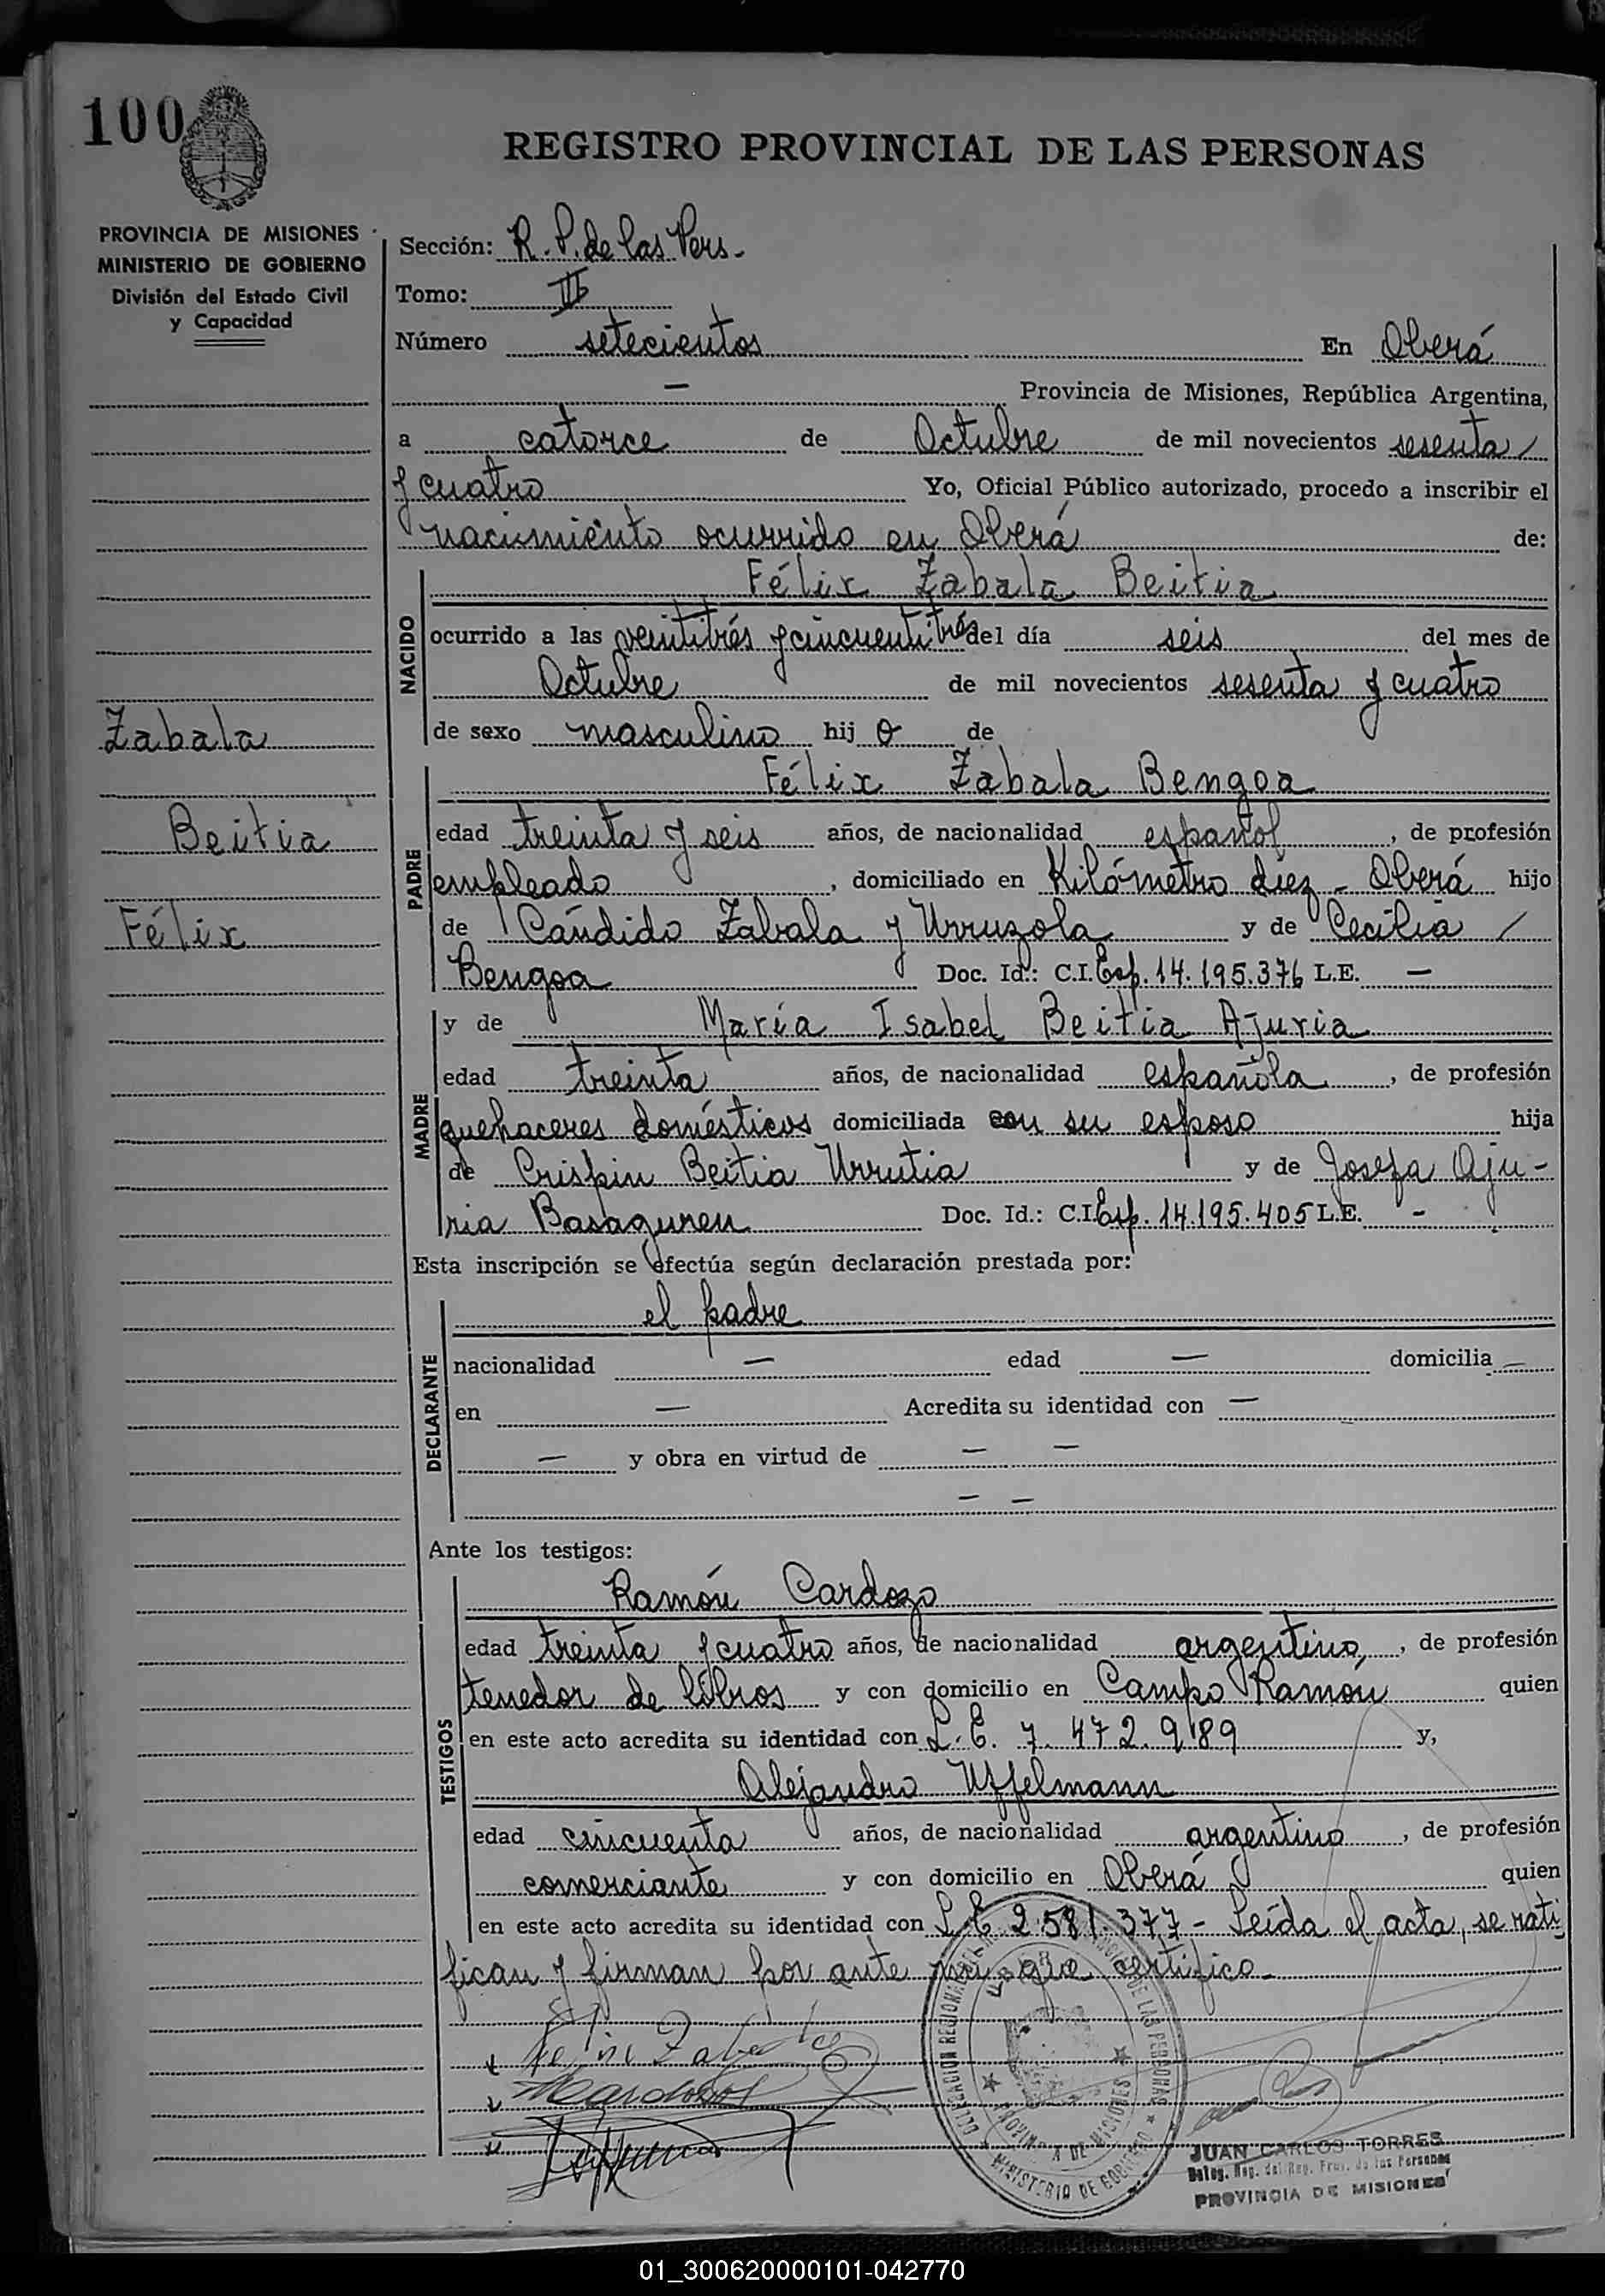 100
REGISTRO PROVINCIAL DE LAS PERSONAS
PROVINCIA DE MISIONES
MINISTERIO DE GOBIERNO
División del Estado Civil
y Capacidad
Sección: R. P. de las Pers.
Tomo: III
Número setecientos En Oberá
— Provincia de Misiones, República Argentina,
a catorce de Octubre de mil novecientos sesenta /
y cuatro Yo, Oficial Público autorizado, procedo a inscribir el
nacimiento ocurrido en Oberá de:
NACIDO
Félix Zabala Beitia
ocurrido a las veintitrés y cincuentitrés del día seis del mes de
Octubre de mil novecientos sesenta y cuatro
de sexo masculino hij o de
Zabala
Beitia
Félix
PADRE
Félix Zabala Bengoa
edad treinta y seis años, de nacionalidad español, de profesión
empleado, domiciliado en Kilómetro diez - Oberá hijo
de Cándido Zabala y Urruzola y de Cecilia /
Bengoa Doc. Id.: C.I. Esp. 14.195.376 L.E. —
MADRE
y de María Isabel Beitia Ajuria
edad treinta años, de nacionalidad española, de profesión
quehaceres domésticos domiciliada con su esposo hija
de Crispin Beitia Urrutia y de Josefa Aju-
ria Basaguren Doc. Id.: C.I. Esp. 14.195.405 L.E. -
Esta inscripción se efectúa según declaración prestada por:
DECLARANTE
el padre
nacionalidad — edad — domicilia —
en — Acredita su identidad con —
— y obra en virtud de — —
— —
Ante los testigos:
TESTIGOS
Ramón Cardozo
edad treinta y cuatro años, de nacionalidad argentino, de profesión
tenedor de libros y con domicilio en Campo Ramón quien
en este acto acredita su identidad con L. E. 7.472.989 y,
Alejandro Uffelmann
edad cincuenta años, de nacionalidad argentino, de profesión
comerciante y con domicilio en Oberá quien
en este acto acredita su identidad con L.E. 2.581.377 - Leída el acta, se rati
fican y firman por ante mi que certifico.
Felix Zabala
DELEGACION REGIONAL DE LAS PERSONAS
PROVINCIA DE MISIONES
MINISTERIO DE GOBIERNO
JUAN CARLOS TORRES
Deleg. Reg. del Reg. Prov. de las Personas
PROVINCIA DE MISIONES
01_300620000101-042770